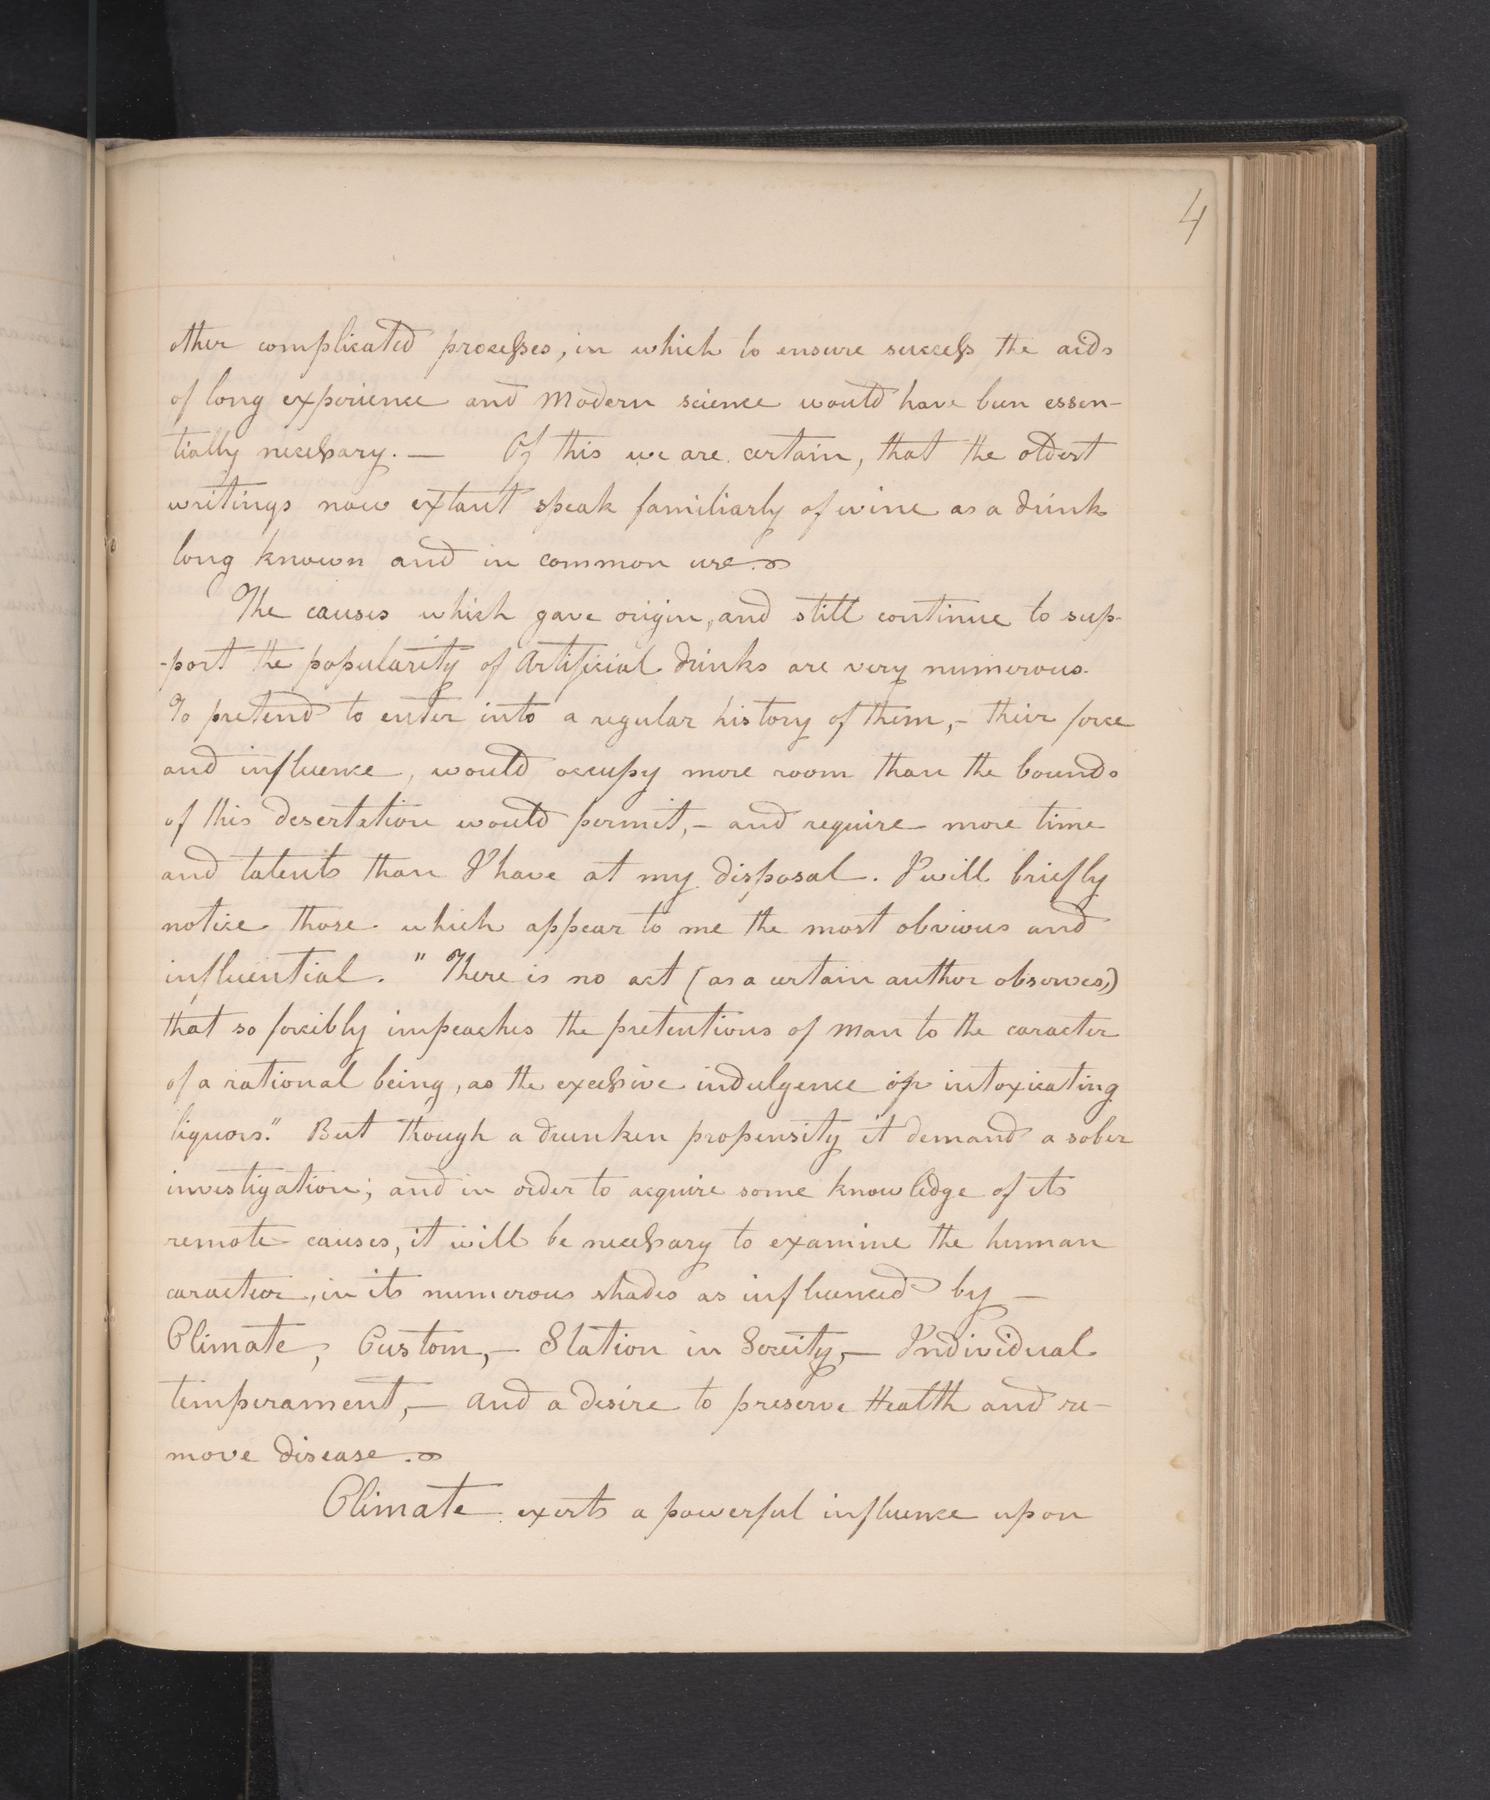 4
other complicated processes, in which to ensure success the aids
of long experience and Modern science would have been essen-
tially necessary. — Of this we are certain, that the oldest
writings now extant speak familiarly of wine as a drink
long known and in common use.
The causes which gave origin, and still continue to sup-
-port the popularity of Artificial drinks are very numerous.
To pretend to enter into a regular history of them, – their force
and influence, would occupy more room than the bounds
of this desertation would permit, – and require more time
and talents than I have at my disposal. I will briefly
notice those which appear to me the most obvious and
influential. " There is no act (as a certain author observes,)
that so forcibly impeaches the pretentions of man to the caracter
of a rational being, as the excessive indulgence in intoxicating
liquors." But though a drunken propensity it demand a sober
investigation; and in order to acquire some knowledge of its
remote causes, it will be necessary to examine the human
caracter, in its numerous shades as influenced by —
Climate, Custom, – Station in Society, – Individual
temperament, — and a desire to preserve Health and re-
move disease.
Climate exerts a powerful influence upon